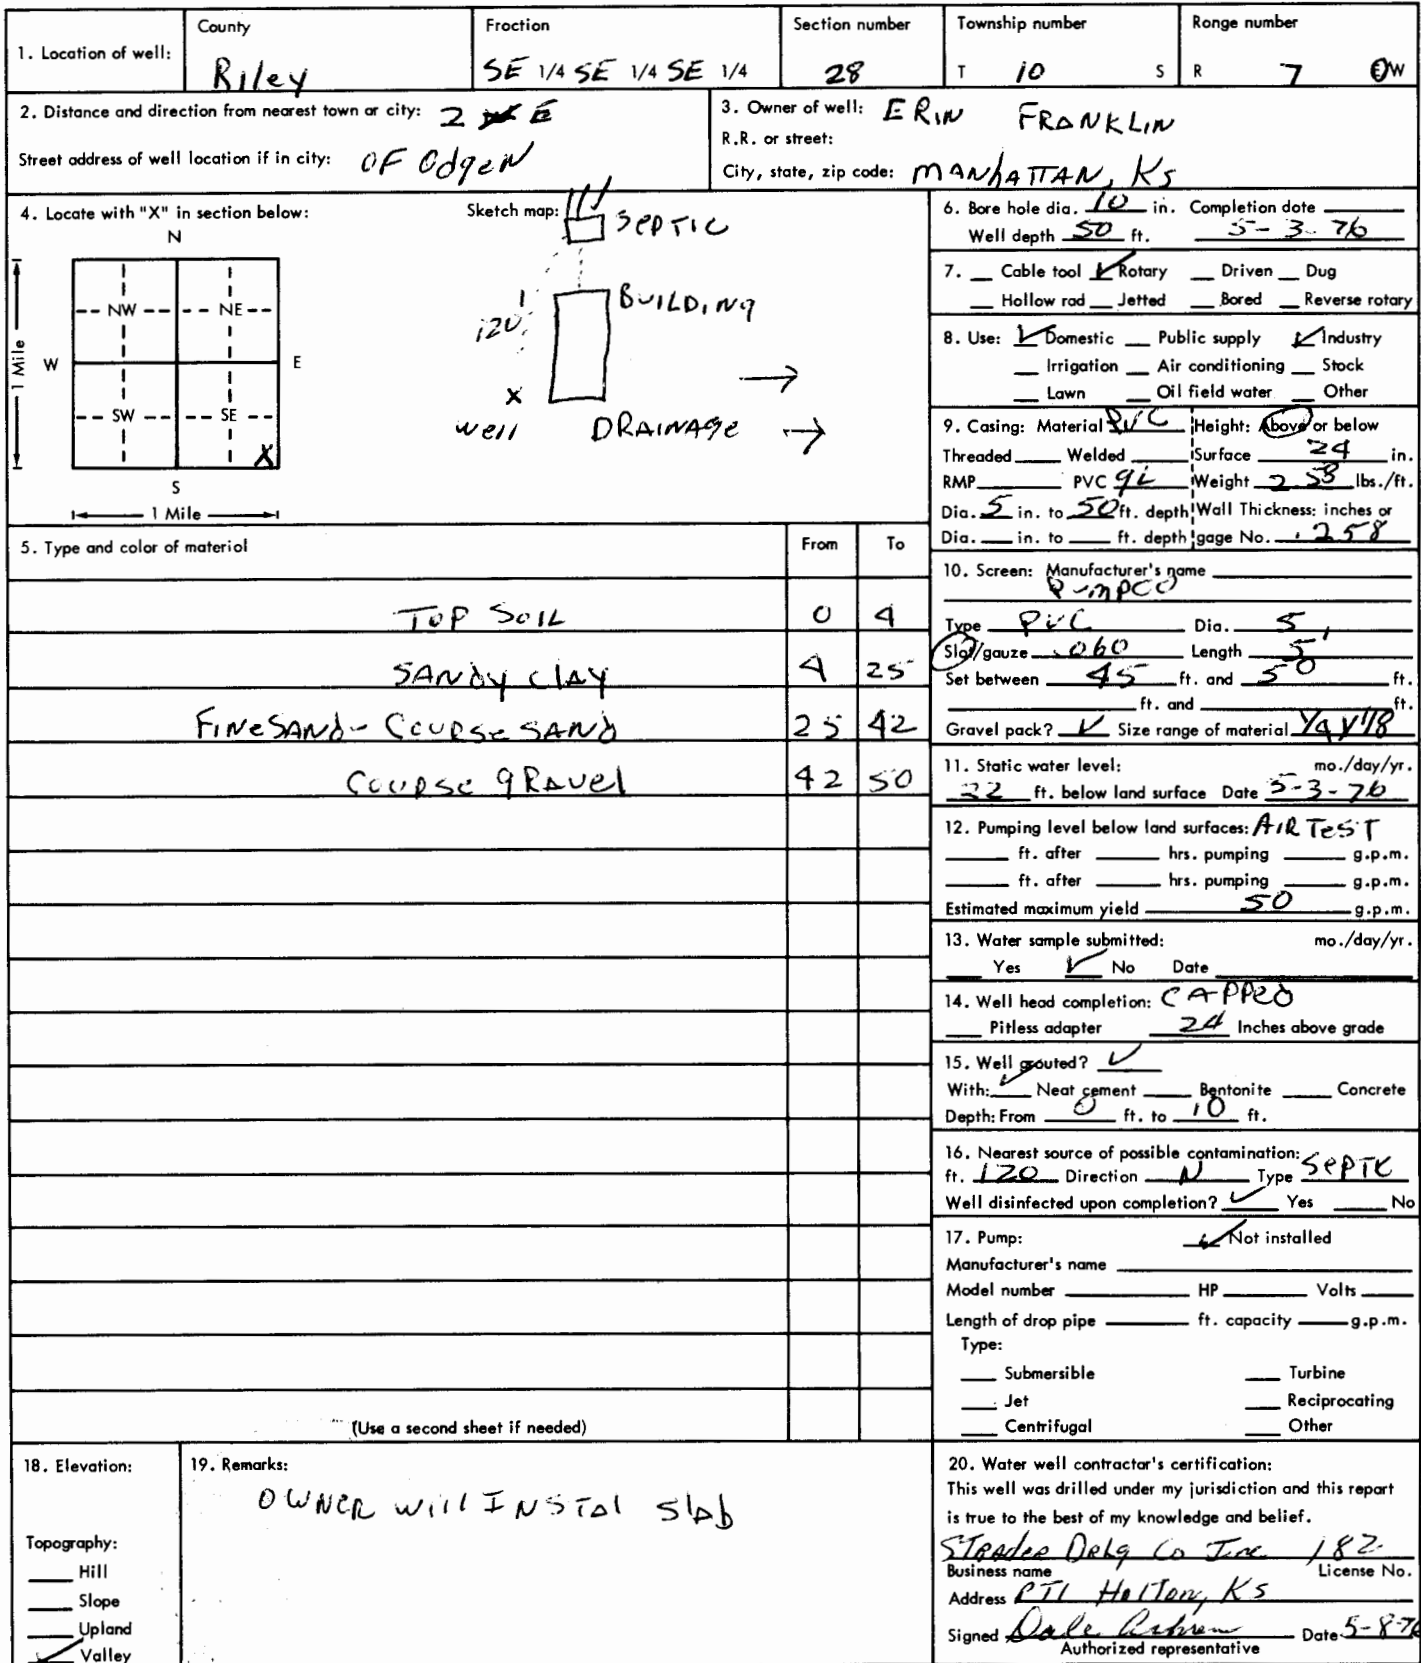 County Fraction Section number Township number Range number
1. Location of well: Riley SE 1/4 SE 1/4 SE 1/4 28 T 10 S R 7 EW
2. Distance and direction from nearest town or city: 2 E
Street address of well location if in city: OF OdgeN
3. Owner of well: ERIN FRANKLIN
R.R. or street:
City, state, zip code: MANhATTAN, Ks
4. Locate with "X" in section below:
N
NW NE
W E
SW SE
X
S
1 Mile
1 Mile
Sketch map:
SEPTIC
BUILDING
120'
X
well
DRAINAGE
5. Type and color of material From To
TOP SOIL 0 4
SANDY CLAY 4 25
FINE SAND - COURSE SAND 25 42
COURSE GRAVEL 42 50
(Use a second sheet if needed)
6. Bore hole dia. 10 in. Completion date
Well depth 50 ft. 5-3-76
7. Cable tool ✓ Rotary Driven Dug
Hollow rod Jetted Bored Reverse rotary
8. Use: ✓ Domestic Public supply ✓ Industry
Irrigation Air conditioning Stock
Lawn Oil field water Other
9. Casing: Material PVC Height: Above or below
Threaded Welded Surface 24 in.
RMP PVC gL Weight 2 58 lbs./ft.
Dia. 5 in. to 50 ft. depth Wall Thickness: inches or
Dia. in. to ft. depth gage No. .258
10. Screen: Manufacturer's name
PumpCO
Type PVC Dia. 5
Slot/gauze .060 Length 5'
Set between 45 ft. and 50 ft.
ft. and ft.
Gravel pack? ✓ Size range of material 1/4 X 1/8
11. Static water level: mo./day/yr.
22 ft. below land surface Date 5-3-76
12. Pumping level below land surfaces: AIR TEST
ft. after hrs. pumping g.p.m.
ft. after hrs. pumping g.p.m.
Estimated maximum yield 50 g.p.m.
13. Water sample submitted: mo./day/yr.
Yes ✓ No Date
14. Well head completion: CAPPED
Pitless adapter 24 Inches above grade
15. Well grouted? ✓
With: ✓ Neat cement Bentonite Concrete
Depth: From 0 ft. to 10 ft.
16. Nearest source of possible contamination:
ft. 120 Direction N Type SEPTIC
Well disinfected upon completion? ✓ Yes No
17. Pump: ✓ Not installed
Manufacturer's name
Model number HP Volts
Length of drop pipe ft. capacity g.p.m.
Type:
Submersible Turbine
Jet Reciprocating
Centrifugal Other
18. Elevation:
Topography:
Hill
Slope
Upland
✓ Valley
19. Remarks:
OWNER will INSTAl SlAb
20. Water well contractor's certification:
This well was drilled under my jurisdiction and this report
is true to the best of my knowledge and belief.
Strader Drlg Co Inc. 182
Business name License No.
Address RT1 Holton, Ks
Signed Dale Date 5-8-76
Authorized representative